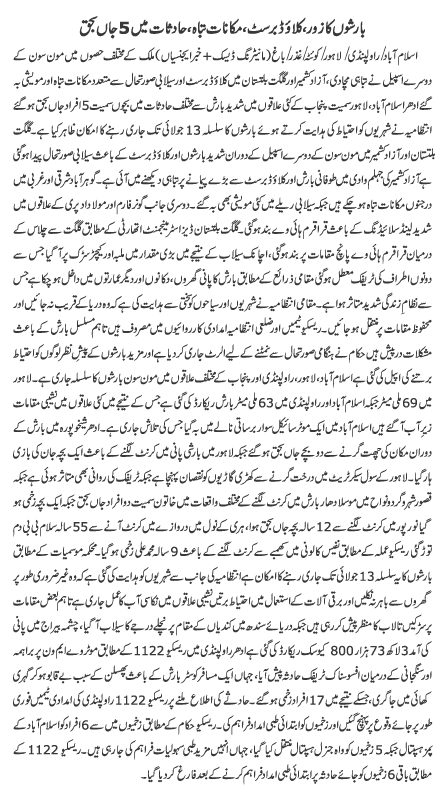 بارشوں کا زور، کلاؤڈ برسٹ، مکانات تباہ، حادثات میں 5 جاں بحق
اسلام آباد/ راولپنڈی/ لاہور/ کوئٹہ/غذر/ باغ (مانیٹرنگ ڈیسک + خبر ایجنسیاں) ملک کے مختلف حصوں میں مون سون کے
دوسرے اسپیل نے تباہی مچا دی، آزاد کشمیر اور گلگت بلتستان میں کلاؤڈ برسٹ اور سیلابی صورتحال سے متعدد مکانات تباہ اور مویشی بہہ
گئے ادھر اسلام آباد، لاہور سمیت پنجاب کے کئی علاقوں میں شدید بارش سے مختلف حادثات میں بچوں سمیت 5 افراد جاں بحق ہو گئے
انتظامیہ نے شہریوں کو احتیاط کی ہدایت کرتے ہوئے بارشوں کا سلسلہ 13 جولائی تک جاری رہنے کا امکان ظاہر کیا ہے۔ گلگت
بلتستان اور آزاد کشمیر میں مون سون کے دوسرے اسپیل کے دوران شدید بارشوں اور کلاؤڈ برسٹ کے باعث سیلابی صورتحال پیدا ہو گئی
ہے آزاد کشمیر کی جہلم وادی میں طوفانی بارش اور کلاؤڈ برسٹ سے بڑے پیمانے پر تباہی دیکھنے میں آئی ہے۔ گوہر آباد شرقی اور غربی میں
درجنوں مکانات تباہ ہو چکے ہیں جبکہ سیلابی ریلے میں کئی مویشی بھی بہہ گئے۔ دوسری جانب گونر فارم اور مولا داد پری کے علاقوں میں
شدید لینڈ سلائیڈنگ کے باعث قراقرم ہائی وے بند ہو گئی۔ گلگت بلتستان ڈیزاسٹر مینجمنٹ اتھارٹی کے مطابق گلگت سے چلاس کے
درمیان قراقرم ہائی وے پانچ مقامات پر بند ہو گئی، اچانک سیلاب کے نتیجے میں بڑی مقدار میں ملبہ اور کیچڑ سڑک پر آ گیا جس سے
دونوں اطراف کی ٹریفک معطل ہو گئی مقامی ذرائع کے مطابق بارش کا پانی گھروں، دکانوں اور دیگر عمارتوں میں داخل ہو چکا ہے جس
سے نظام زندگی شدید متاثر ہوا ہے۔ مقامی انتظامیہ نے شہریوں اور سیاحوں کو سختی سے ہدایت کی ہے کہ وہ دریا کے قریب نہ جائیں اور
محفوظ مقامات پر منتقل ہو جائیں۔ ریسکیو ٹیمیں اور ضلعی انتظامیہ امدادی کارروائیوں میں مصروف ہیں تاہم مسلسل بارش کے باعث
مشکلات درپیش ہیں حکام نے ہنگامی صورتحال سے نمٹنے کے لیے الرٹ جاری کر دیا ہے اور مزید بارشوں کے پیش نظر لوگوں کو احتیاط
برتنے کی اپیل کی گئی ہے اسلام آباد، لاہور، راولپنڈی اور پنجاب کے مختلف علاقوں میں مون سون بارشوں کا سلسلہ جاری ہے۔ لاہور
میں 69 ملی میٹر جبکہ اسلام آباد اور راولپنڈی میں 63 ملی میٹر بارش ریکارڈ کی گئی ہے جس کے نتیجے میں کئی علاقوں میں نشیبی مقامات
زیر آب آ گئے ہیں اسلام آباد میں ایک موٹر سائیکل سوار برساتی نالے میں بہہ گیا جس کی تلاش جاری ہے۔ ادھر شیخوپورہ میں بارش کے
دوران مکان کی چھت گرنے سے دو بچے جاں بحق ہو گئے جبکہ لاہور میں بارشی پانی میں کرنٹ لگنے کے باعث ایک بچہ جان کی بازی
ہار گیا۔ لاہور کے سول سیکرٹریٹ میں درخت گرنے سے کھڑی گاڑیوں کو نقصان پہنچا ہے جبکہ ٹریفک کی روانی بھی متاثر ہوئی ہے جبکہ
قصور شہر و گرد و نواح میں موسلا دھار بارش میں کرنٹ لگنے کے مختلف واقعات میں خاتون سمیت دو افراد جاں بحق جبکہ ایک بچہ زخمی ہو
گیا نور پور میں کرنٹ لگنے سے 12 سالہ بچہ جاں بحق ہوا، ہری کے نول میں دروازے میں کرنٹ آنے سے 55 سالہ سلام بی بی دم
توڑ گئی ریسکیو عملہ کے مطابق نفیس کالونی میں کھمبے سے کرنٹ لگنے کے باعث 9 سالہ محمد علی زخمی ہو گیا۔ محکمہ موسمیات کے مطابق
بارشوں کا یہ سلسلہ 13 جولائی تک جاری رہنے کا امکان ہے انتظامیہ کی جانب سے شہریوں کو ہدایت کی گئی ہے کہ وہ غیر ضروری طور پر
گھروں سے باہر نہ نکلیں اور برقی آلات کے استعمال میں احتیاط برتیں نشیبی علاقوں میں نکاسی آب کا عمل جاری ہے تاہم بعض مقامات
پر سڑکیں تالاب کا منظر پیش کر رہی ہیں جبکہ دریائے سندھ میں کندیاں کے مقام پر نچلے درجے کا سیلاب آ گیا، چشمہ بیراج میں پانی
کی آمد 3 لاکھ 73 ہزار 800 کیوسک ریکارڈ کی گئی ہے ادھر راولپنڈی میں ریسکیو 1122 کے مطابق موٹروے ایم ون پر براہمہ
اور سنگجانی کے درمیان افسوسناک ٹریفک حادثہ پیش آیا، جہاں ایک مسافر کوسٹر بارش کے باعث پھسلن کے سبب بے قابو ہو کر گہری
کھائی میں جا گری، جسکے نتیجے میں 17 افراد زخمی ہو گئے۔ حادثے کی اطلاع ملنے پر ریسکیو 1122 راولپنڈی کی امدادی ٹیمیں فوری
طور پر جائے وقوعہ پر پہنچ گئیں اور زخمیوں کو ابتدائی طبی امداد فراہم کی گئی۔ ریسکیو حکام کے مطابق زخمیوں میں سے 6 افراد کو اسلام آباد کے
پمز جبکہ 5 زخمیوں کو واہ جنرل ہسپتال منتقل کیا گیا، جہاں انہیں مزید طبی سہولیات فراہم کی جا رہی ہیں۔ ریسکیو 1122 کے
مطابق باقی 6 زخمیوں کو جائے حادثہ پر ابتدائی طبی امداد فراہم کرنے کے بعد فارغ کر دیا گیا۔